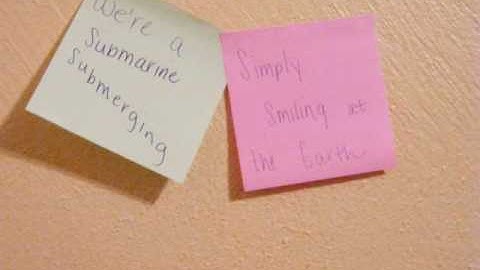 We're a
Submarine
Submerging
Simply
Smiling at
the Earth